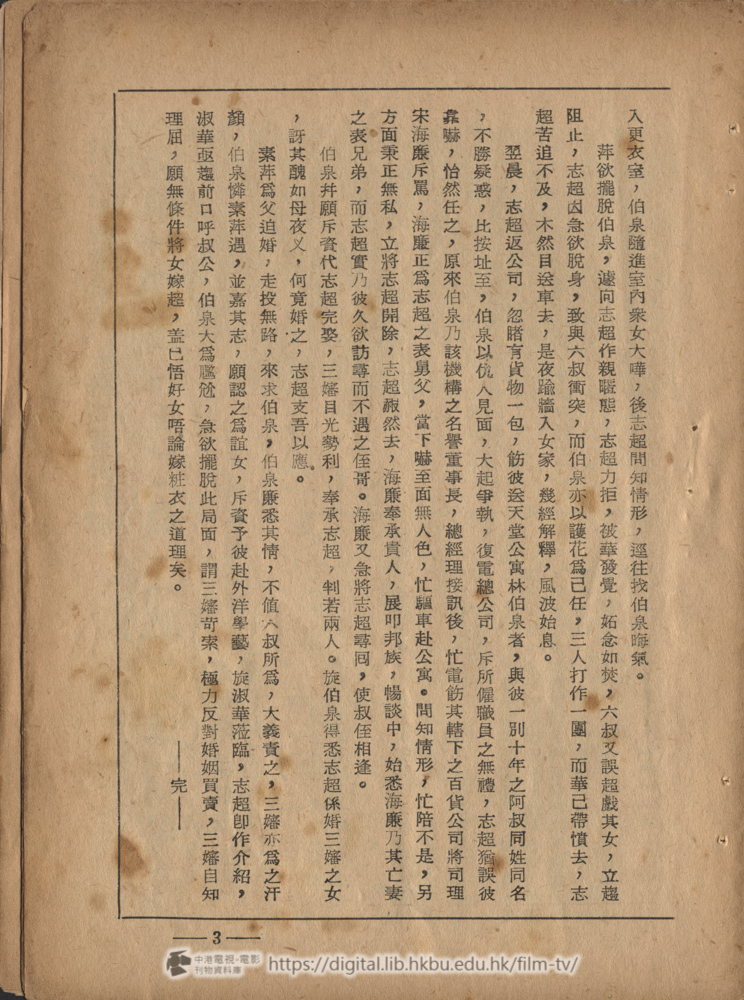 入更衣室，伯泉隨進室內衆女大嘩，後志超問知情形，逕往找伯泉晦氣。
萍欲擺脫伯泉，遽向志超作親暱態，志超力拒，被華發覺，妬念如焚，六叔又誤超戲其女，立趨
阻止，志超因急欲脫身，致與六叔衝突，而伯泉亦以護花爲己任，三人打作一團，而華已帶憤去，志
超苦追不及，木然目送車去，是夜踰牆入女家，幾經解釋，風波始息。
翌晨，志超返公司，忽睹有貨物一包，飭彼送天堂公寓林伯泉者，與彼一別十年之阿叔同姓同名
，不勝疑惑，比按址至，伯泉以仇人見面，大起爭執，復電總公司，斥所僱職員之無禮，志超猶誤彼
靠嚇，怡然任之，原來伯泉乃該機構之名譽董事長，總經理接訊後，忙電飭其轄下之百貨公司將司理
宋海廉斥罵，海廉正爲志超之表舅父，當下嚇至面無人色，忙驅車赴公寓。問知情形，忙陪不是，另
方面秉正無私，立將志超開除，志超赧然去，海廉奉承貴人，展叩邦族，暢談中，始悉海廉乃其亡妻
之表兄弟，而志超實乃彼久欲訪尋而不遇之侄哥。海廉又急將志超尋回，使叔侄相逢。
伯泉幷願斥資代志超完娶，三嬸目光勢利，奉承志超，判若兩人。旋伯泉得悉志超係婚三嬸之女
，訝其醜如母夜叉，何竟婚之，志超支吾以應。
素萍爲父迫婚，走投無路，來求伯泉，伯泉廉悉其情，不值六叔所爲，大義責之，三嬸亦爲之汗
顏，伯泉憐素萍遇，並嘉其志，願認之爲誼女，斥資予彼赴外洋學藝，旋淑華蒞臨，志超卽作介紹，
淑華亟趨前口呼叔公，伯泉大爲尷尬，急欲擺脫此局面，謂三嬸苛索，極力反對婚姻買賣，三嬸自知
理屈，願無條件將女嫁超，蓋已悟好女唔論嫁粧衣之道理矣。
——完——
——3——
中港電視·電影
刊物資料庫
https://digital.lib.hkbu.edu.hk/film-tv/